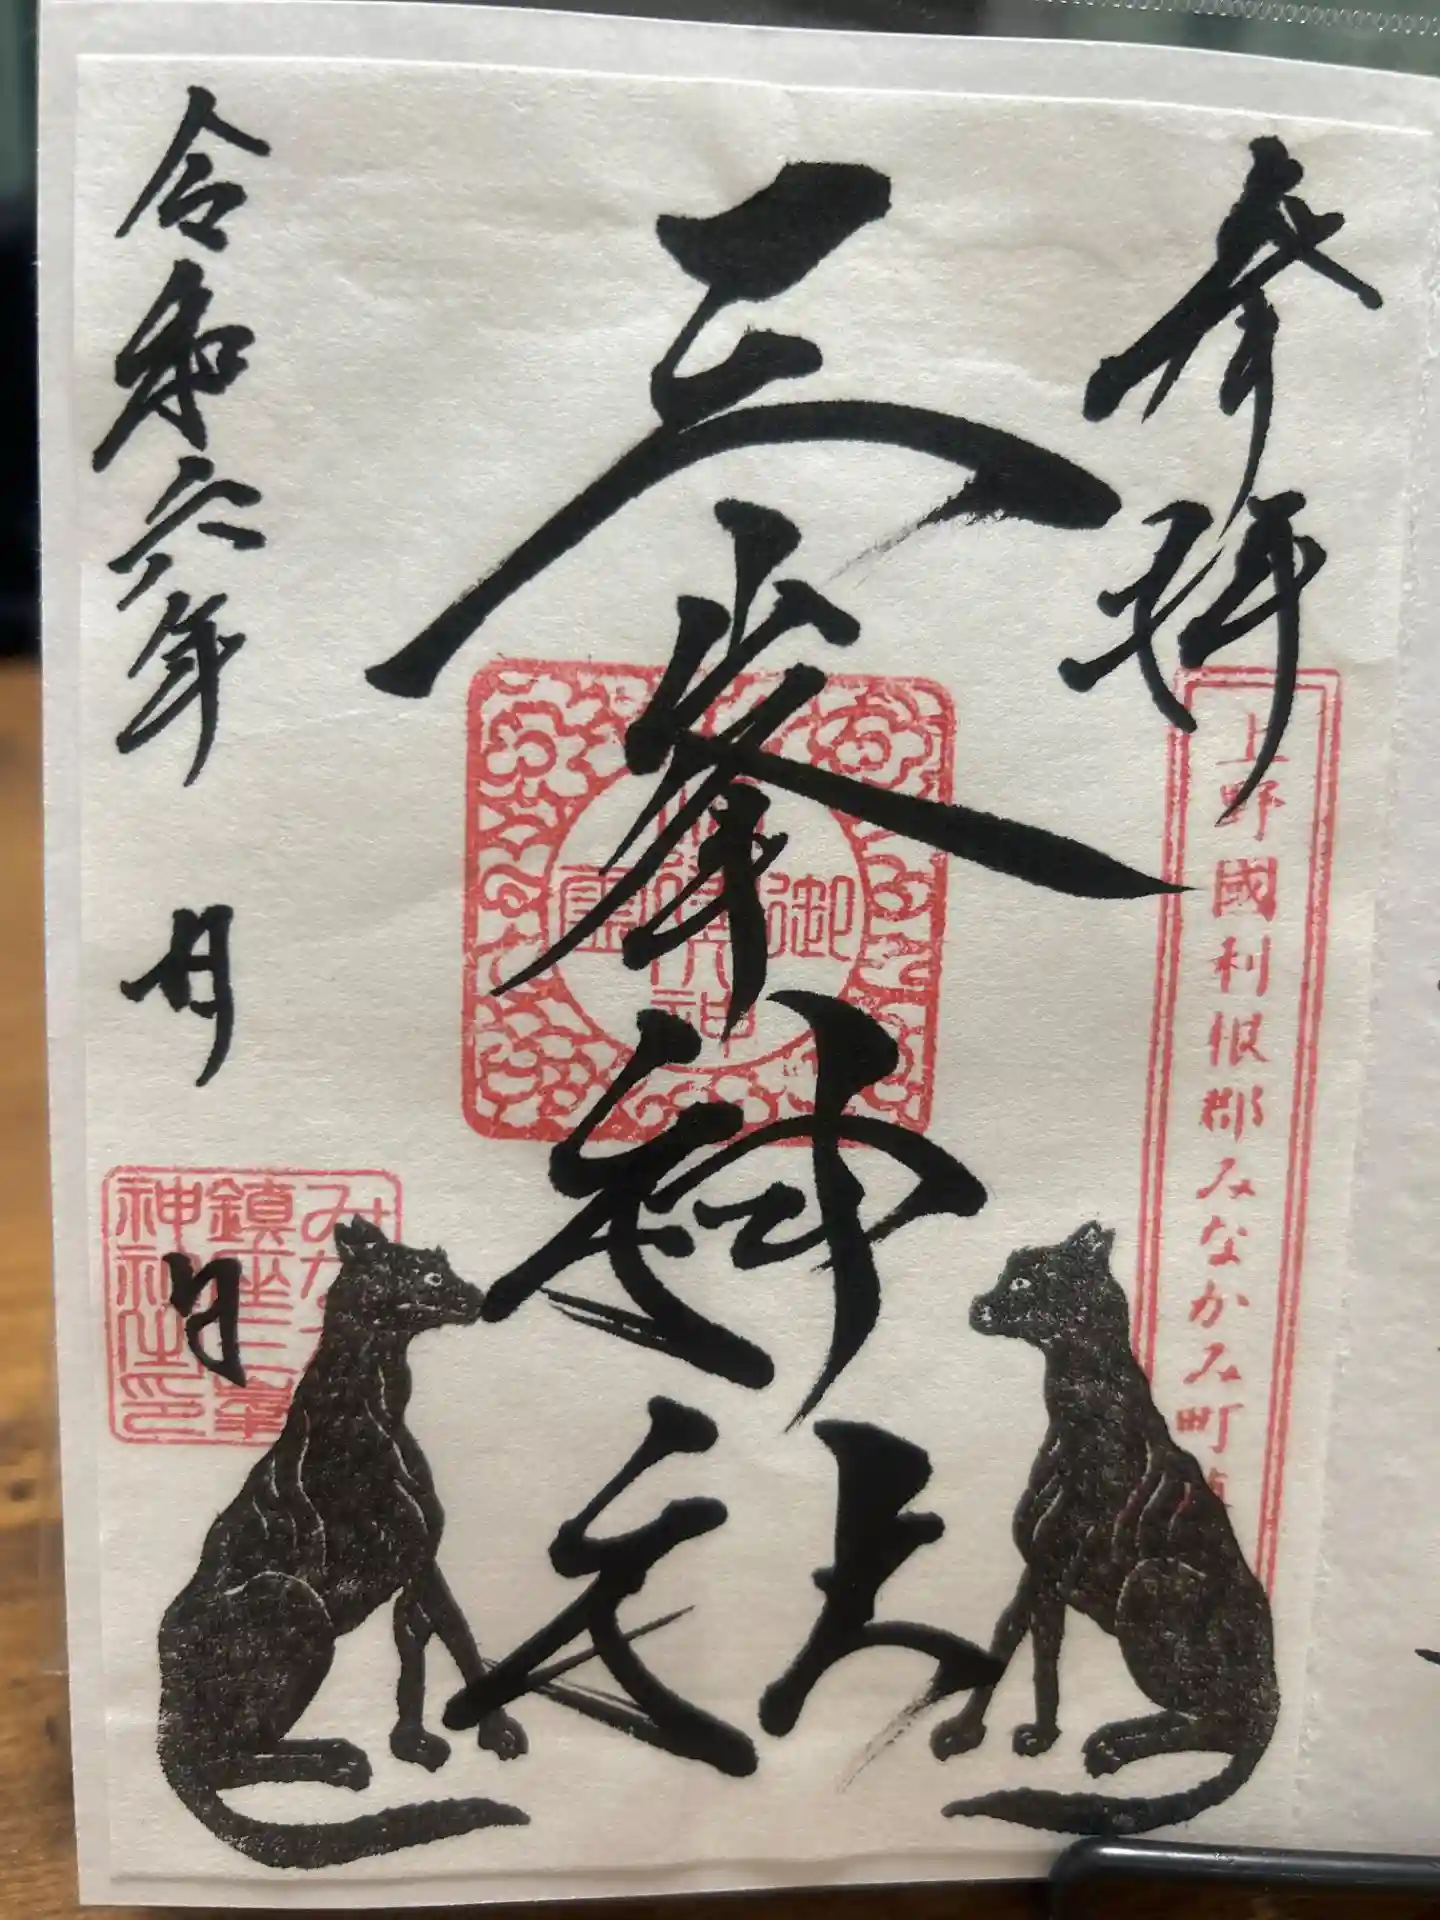 参拝
上野國利根郡みなかみ町鎮
三峯神社
御神霊
令和六年 月 日
みなかみ
鎮座三峯
神社之印